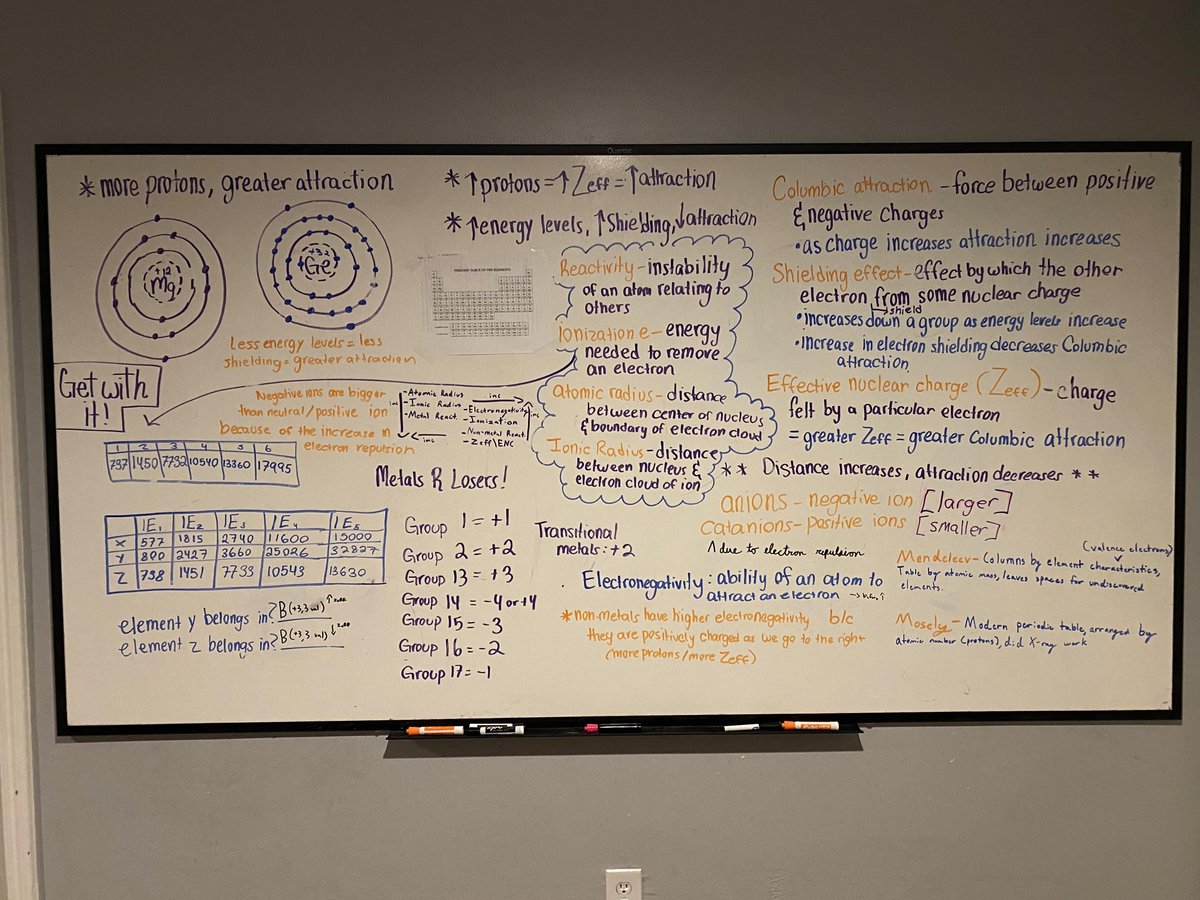 Quartet
* more protons, greater attraction
+12
Mg
+32
Ge
Less energy levels = less
shielding = greater attraction
Get with
it!
Negative ions are bigger
than neutral/positive ion
because of the increase in
electron repulsion
1 2 3 4 5 6
737 1450 7732 10540 13360 17995
IE₁ IE₂ IE₃ IE₄ IE₅
X 577 1815 2740 11600 15000
Y 800 2427 3660 25026 32827
Z 738 1451 7733 10543 13630
element y belongs in? B(+3,3
element z belongs in? B(+3,3
* ↑protons = ↑Zeff = ↑attraction
* ↑energy levels, ↑Shielding, ↓attraction
PERIODIC TABLE OF THE ELEMENTS
inc
- Atomic Radius
- Ionic Radius
- Metal React.
inc
inc
- Electronegativity
- Ionization
- Non-metal React.
- Zeff\ENC
inc
Metals R Losers!
Group 1 = +1
Group 2 = +2
Group 13 = +3
Group 14 = -4 or +4
Group 15 = -3
Group 16 = -2
Group 17 = -1
Transitional
metals: +2
Reactivity - instability
of an atom relating to
others
Ionization e - energy
needed to remove
an electron
Atomic radius - distance
between center of nucleus
& boundary of electron cloud
Ionic Radius - distance
between nucleus &
electron cloud of ion
Columbic attraction - force between positive
& negative charges
• as charge increases attraction increases
Shielding effect - effect by which the other
electron from some nuclear charge
shield
• increases down a group as energy levels increase
• Increase in electron shielding decreases Columbic
attraction
Effective nuclear charge (Zeff) - charge
felt by a particular electron
= greater Zeff = greater Columbic attraction
** Distance increases, attraction decreases **
anions - negative ion [larger]
catanions - positive ions [smaller]
^ due to electron repulsion
Electronegativity: ability of an atom to
attract an electron
*non-metals have higher electronegativity b/c
they are positively charged as we go to the right
(more protons/more Zeff)
(valence electrons)
Mendeleev - Columns by element characteristics,
Table by atomic mass, leaves spaces for undiscovered
elements.
Mosely - Modern periodic table, arranged by
atomic number (protons), did X-ray work